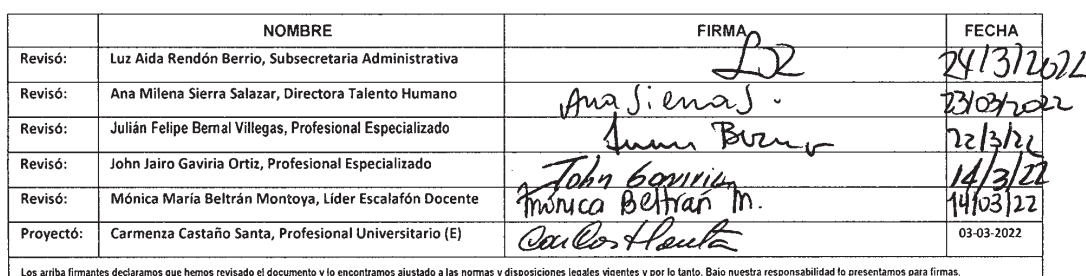 NOMBRE FIRMA FECHA
Revisó: Luz Aida Rendón Berrio, Subsecretaria Administrativa LJR 24/3/2022
Revisó: Ana Milena Sierra Salazar, Directora Talento Humano Ana Sierra S. 23/03/2022
Revisó: Julián Felipe Bernal Villegas, Profesional Especializado 22/3/22
Revisó: John Jairo Gaviria Ortiz, Profesional Especializado John Gaviria 14/3/22
Revisó: Mónica María Beltrán Montoya, Líder Escalafón Docente Mónica Beltrán M. 14/03/22
Proyectó: Carmenza Castaño Santa, Profesional Universitario (E) 03-03-2022
Los arriba firmantes declaramos que hemos revisado el documento y lo encontramos ajustado a las normas y disposiciones legales vigentes y por lo tanto. Bajo nuestra responsabilidad lo presentamos para firmas.